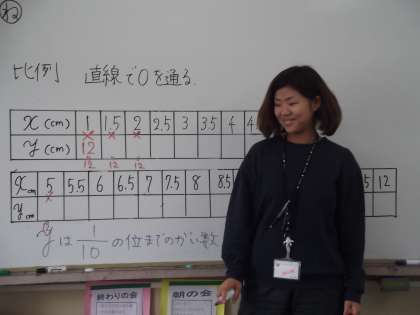 ね
比例 直線で0を通る.
x(cm) 1 1.5 2 2.5 3 3.5 4
y(cm) 12
12 12 12
xcm 5 5.5 6 6.5 7 7.5 8 8.5 12
ycm
yは 1/10 の位までのがい数
終わりの会 朝の会